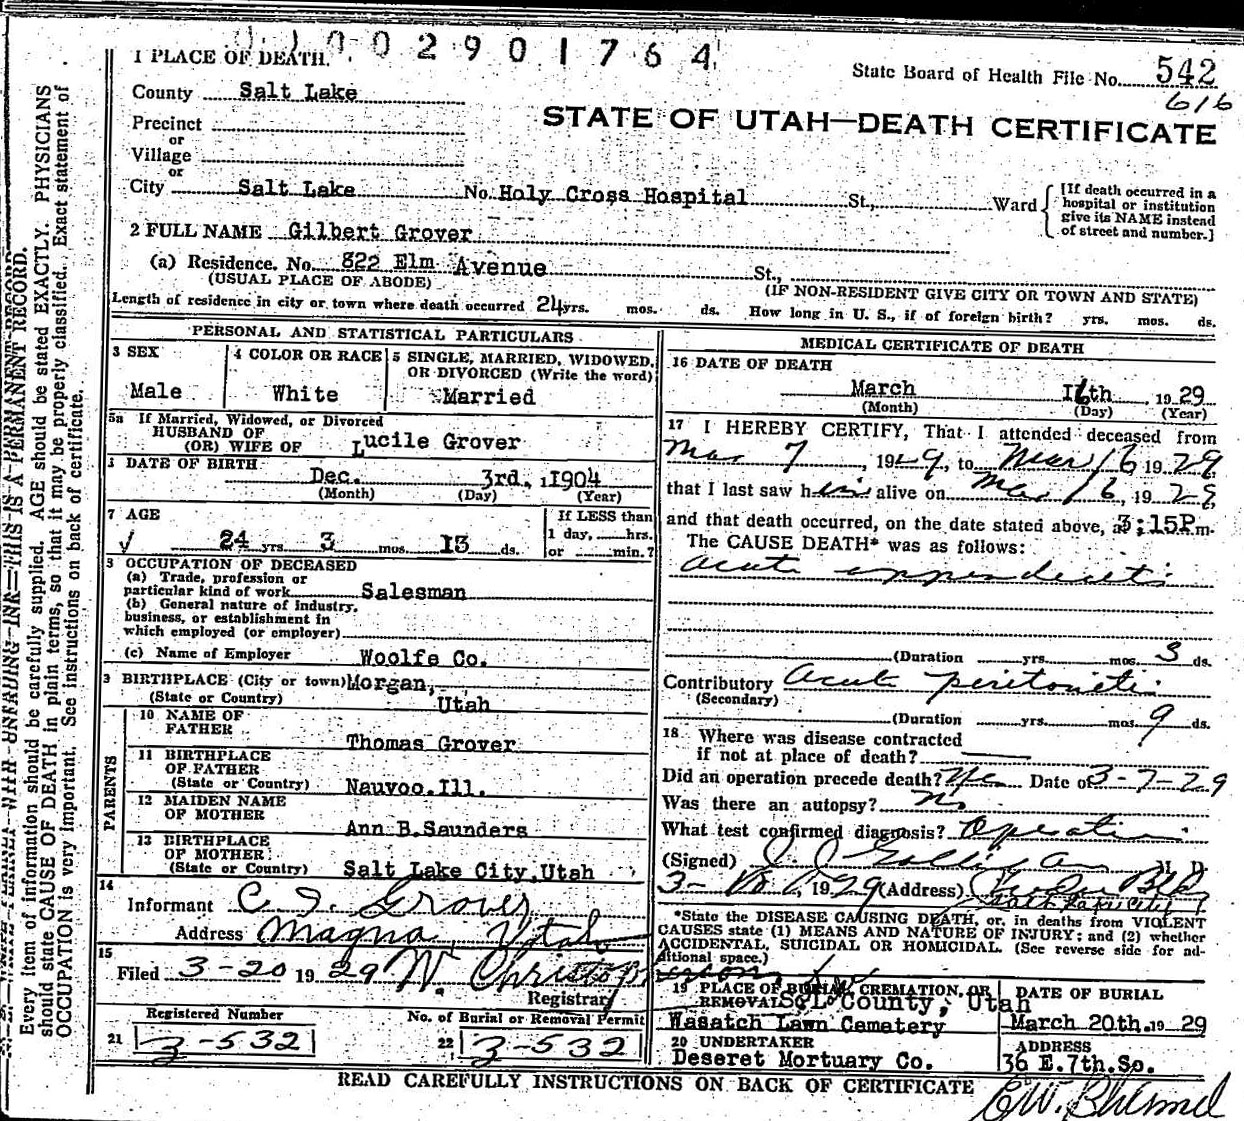 1002901764
1 PLACE OF DEATH.
State Board of Health File No. 542
616
County Salt Lake
STATE OF UTAH—DEATH CERTIFICATE
Precinct
or
Village
or
City Salt Lake No. Holy Cross Hospital St., Ward
[If death occurred in a
hospital or institution
give its NAME instead
of street and number.]
2 FULL NAME Gilbert Grover
(a) Residence. No. 822 Elm Avenue St.,
(USUAL PLACE OF ABODE) (IF NON-RESIDENT GIVE CITY OR TOWN AND STATE)
Length of residence in city or town where death occurred 24 yrs. mos. ds. How long in U. S., if of foreign birth? yrs. mos. ds.
PERSONAL AND STATISTICAL PARTICULARS
3 SEX
Male
4 COLOR OR RACE
White
5 SINGLE, MARRIED, WIDOWED,
OR DIVORCED (Write the word)
Married
5a If Married, Widowed, or Divorced
HUSBAND OF
(OR) WIFE OF Lucile Grover
DATE OF BIRTH
Dec. 3rd, 1904
(Month) (Day) (Year)
7 AGE
24 yrs. 3 mos. 13 ds.
If LESS than
1 day, hrs.
or min.?
OCCUPATION OF DECEASED
(a) Trade, profession or
particular kind of work Salesman
(b) General nature of industry,
business, or establishment in
which employed (or employer)
(c) Name of Employer Woolfe Co.
9 BIRTHPLACE (City or town) Morgan,
(State or Country) Utah
PARENTS
10 NAME OF
FATHER
Thomas Grover
11 BIRTHPLACE
OF FATHER
(State or Country) Nauvoo.Ill.
12 MAIDEN NAME
OF MOTHER
Ann B.Saunders
13 BIRTHPLACE
OF MOTHER
(State or Country) Salt Lake City,Utah
14
Informant C. I. Grover
Address Magna, Utah
15
Filed 3-20 1929 W. Christopherson
Registrar
Registered Number No. of Burial or Removal Permit
21 3-532 22 3-532
MEDICAL CERTIFICATE OF DEATH
16 DATE OF DEATH
March 16th, 1929
(Month) (Day) (Year)
17 I HEREBY CERTIFY, That I attended deceased from
Mar 7, 1929, to Mar 16 1929
that I last saw him alive on Mar 16, 1928
and that death occurred, on the date stated above, at 3:15P m.
The CAUSE DEATH* was as follows:
acute appendicitis
(Duration yrs. mos. 3 ds.
Contributory Acute peritonitis
(Secondary)
(Duration yrs. mos. 9 ds.
18 Where was disease contracted
if not at place of death?
Did an operation precede death? Yes Date of 3-7-29
Was there an autopsy? No
What test confirmed diagnosis? Operation
(Signed) J. J. Galligan M. D.
3-18, 1929 (Address)
Salt Lake City
*State the DISEASE CAUSING DEATH, or, in deaths from VIOLENT
CAUSES state (1) MEANS AND NATURE OF INJURY; and (2) whether
ACCIDENTAL, SUICIDAL OR HOMICIDAL. (See reverse side for ad-
ditional space.)
19 PLACE OF BURIAL, CREMATION, OR
REMOVAL S.L. County, Utah
Wasatch Lawn Cemetery
DATE OF BURIAL
March 20th. 19 29
20 UNDERTAKER
Deseret Mortuary Co.
ADDRESS
36 E.7th.So.
READ CAREFULLY INSTRUCTIONS ON BACK OF CERTIFICATE
N. B.—WRITE PLAINLY WITH UNFADING INK—THIS IS A PERMANENT RECORD.
Every item of information should be carefully supplied. AGE should be stated EXACTLY. PHYSICIANS
should state CAUSE OF DEATH in plain terms, so that it may be properly classified. Exact statement of
OCCUPATION is very important. See instructions on back of certificate.